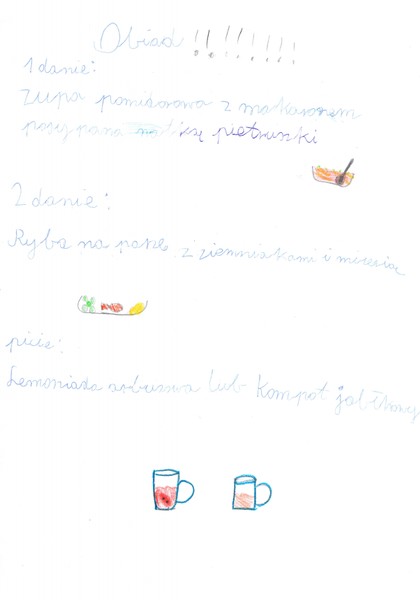 Obiad !!!!!!!!
1 danie:
zupa pomidorowa z makaronem
posypana natką pietruszki
2 danie:
Ryba na parze z ziemniakami i mizerią
picie:
Lemoniada arbuzowa lub kompot jabłkowy